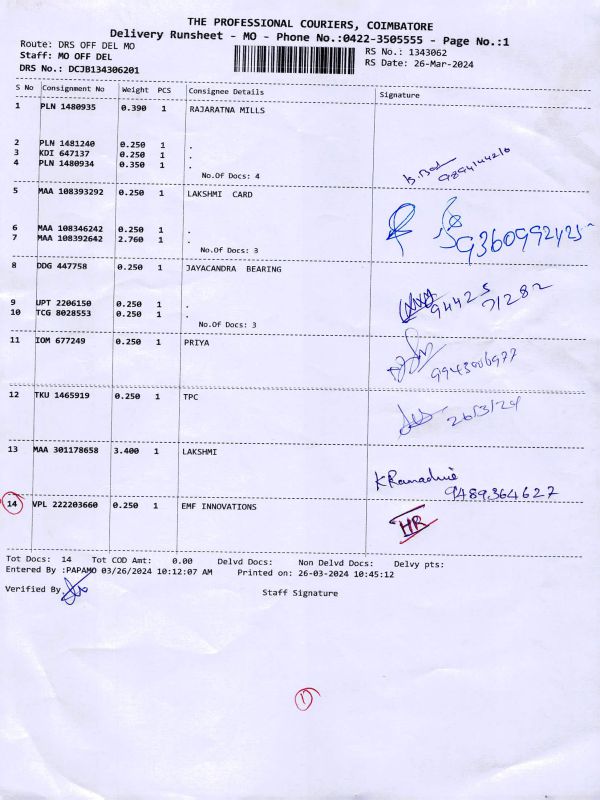 THE PROFESSIONAL COURIERS, COIMBATORE
Delivery Runsheet - MO - Phone No.:0422-3505555 - Page No.:1
Route: DRS OFF DEL MO RS No.: 1343062
Staff: MO OFF DEL RS Date: 26-Mar-2024
DRS No.: DCJB134306201
S No Consignment No Weight PCS Consignee Details Signature
1 PLN 1480935 0.390 1 RAJARATNA MILLS
2 PLN 1481240 0.250 1 .
3 KDI 647137 0.250 1 .
4 PLN 1480934 0.350 1 .
No.Of Docs: 4
9894144210
5 MAA 108393292 0.250 1 LAKSHMI CARD
6 MAA 108346242 0.250 1 .
7 MAA 108392642 2.760 1 .
No.Of Docs: 3
8 DDG 447758 0.250 1 JAYACANDRA BEARING
9 UPT 2206150 0.250 1 .
10 TCG 8028553 0.250 1 .
No.Of Docs: 3
94425 71282
11 IOM 677249 0.250 1 PRIYA
9943006977
12 TKU 1465919 0.250 1 TPC
26/3/24
13 MAA 301178658 3.400 1 LAKSHMI
9489364627
14 VPL 222203660 0.250 1 EMF INNOVATIONS
HR
Tot Docs: 14 Tot COD Amt: 0.00 Delvd Docs: Non Delvd Docs: Delvy pts:
Entered By :PAPAMO 03/26/2024 10:12:07 AM Printed on: 26-03-2024 10:45:12
Verified By.
Staff Signature
1